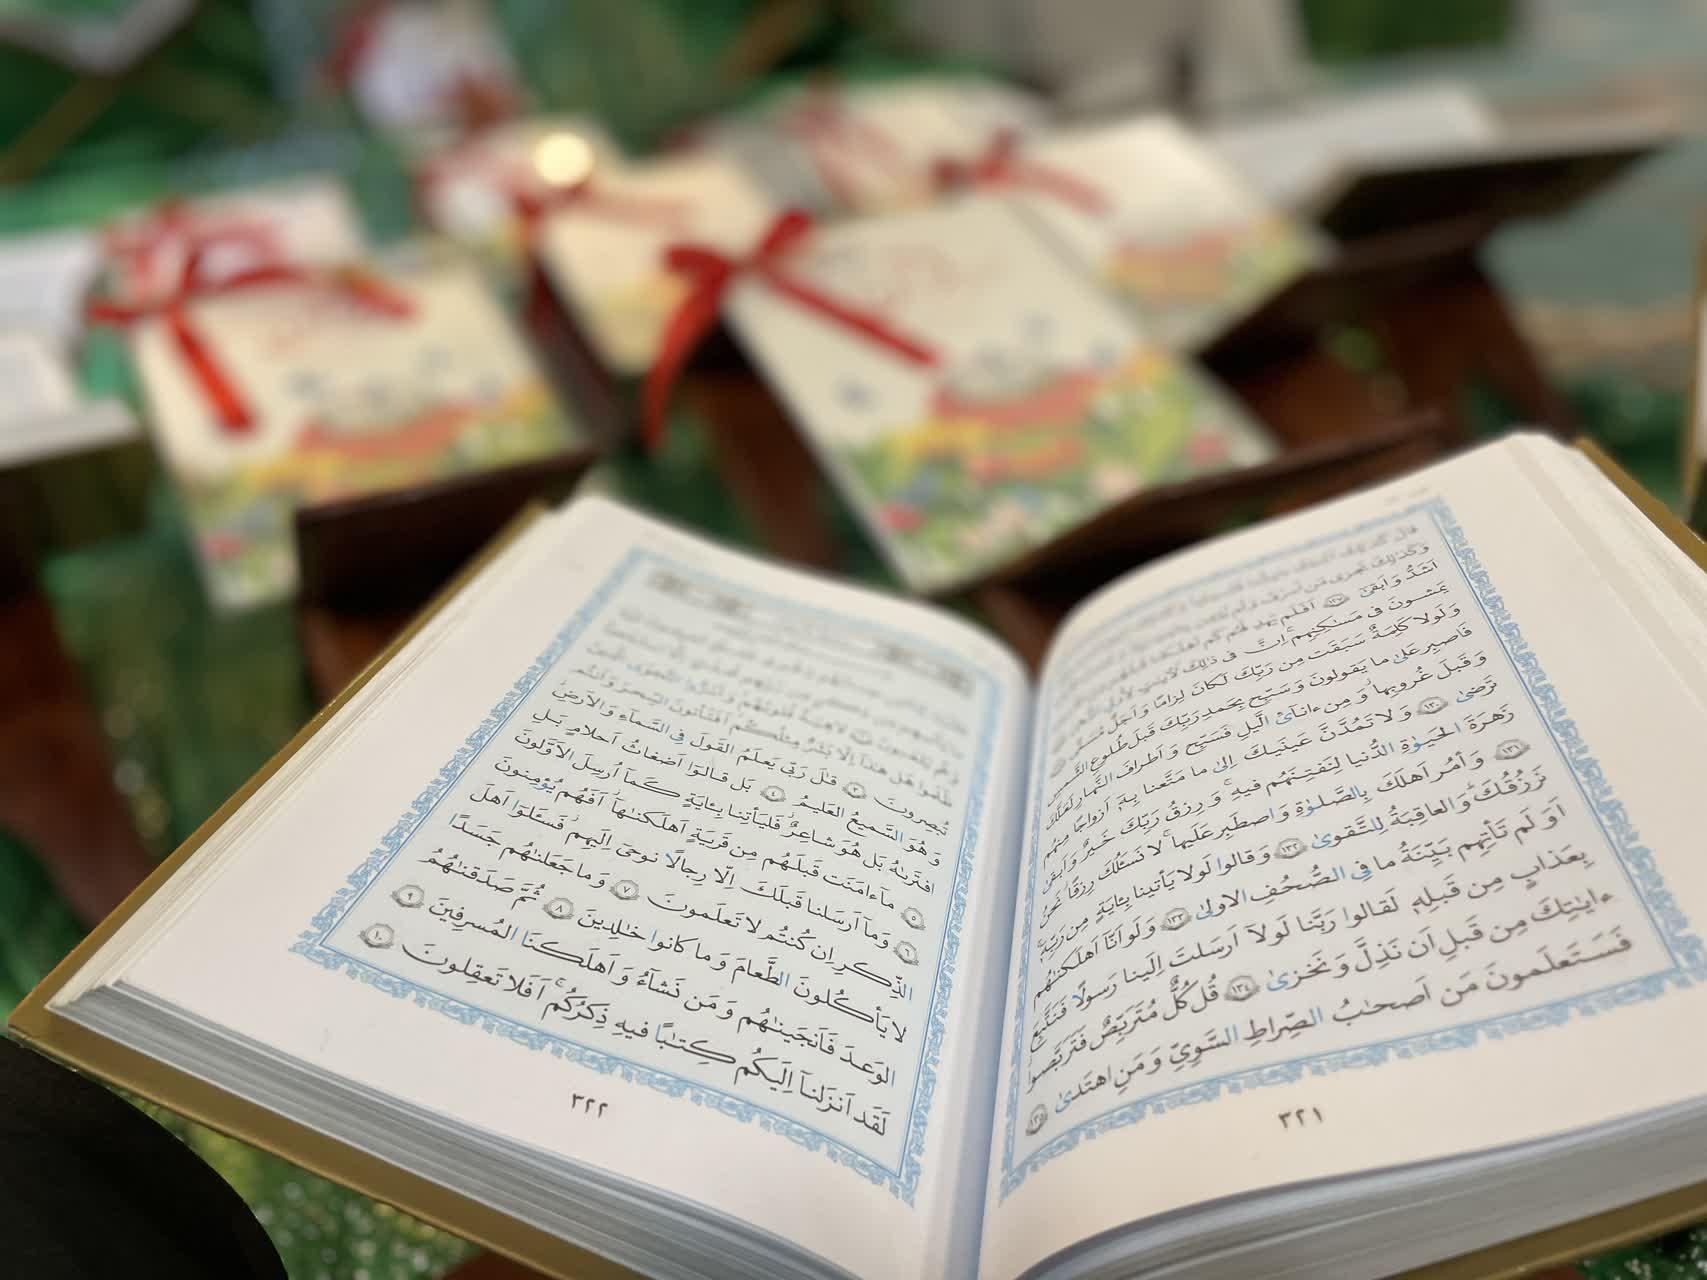 اَشَدُّ وَ اَبقىٰٓ ١٢٧ اَفَلَم يَهدِ لَهُم كَم اَهلَكنا
يَمشونَ فى مَسٰكِنِهِم ۚ اِنَّ فى ذٰلِكَ لَأيٰتٍ لِاُولِى النُّهىٰ
وَ لَولا كَلِمَةٌ سَبَقَت مِن رَبِّكَ لَكانَ لِزامًا وَ اَجَلٌ مُسَمًّى
فَاصبِر عَلىٰ ما يَقولونَ وَ سَبِّح بِحَمدِ رَبِّكَ قَبلَ طُلوعِ الشَّمسِ
وَ قَبلَ غُروبِها ۖ وَ مِن ءانآئِ الَّيلِ فَسَبِّح وَ اَطرافَ النَّهارِ لَعَلَّكَ
تَرضىٰ ١٣٠ وَ لا تَمُدَّنَّ عَينَيكَ اِلىٰ ما مَتَّعنا بِهٖٓ اَزواجًا مِنهُم
زَهرَةَ الحَيَوٰةِ الدُّنيا لِنَفتِنَهُم فيهِ ۚ وَ رِزقُ رَبِّكَ خَيرٌ وَ اَبقىٰ
١٣١ وَ أمُر اَهلَكَ بِالصَّلَوٰةِ وَ اصطَبِر عَلَيها ۖ لا نَسـَٔلُكَ رِزقًا ۖ نَحنُ
نَرزُقُكَ ۗ وَ العاقِبَةُ لِلتَّقوىٰ ١٣٢ وَ قالوا لَولا يَأتينا بِـٔايَةٍ مِن رَبِّهٖٓ ۚ
اَوَ لَم تَأتِهِم بَيِّنَةُ ما فِى الصُّحُفِ الاولىٰ ١٣٣ وَ لَو اَنّآ اَهلَكنٰهُم
بِعَذابٍ مِن قَبلِهٖ لَقالوا رَبَّنا لَولآ اَرسَلتَ اِلَينا رَسولًا فَنَتَّبِعَ
ءايٰتِكَ مِن قَبلِ اَن نَذِلَّ وَ نَخزىٰ ١٣٤ قُل كُلٌّ مُتَرَبِّصٌ فَتَرَبَّصوا ۖ
فَسَتَعلَمونَ مَن اَصحٰبُ الصِّراطِ السَّوِىِّ وَ مَنِ اهتَدىٰ ١٣٥
٣٢١
ظَلَموا هَل هٰذآ اِلّا بَشَرٌ مِثلُكُم ۖ اَفَتَأتونَ السِّحرَ وَ اَنتُم
تُبصِرونَ ٣ قالَ رَبّى يَعلَمُ القَولَ فِى السَّمآءِ وَ الاَرضِ ۖ
وَ هُوَ السَّميعُ العَليمُ ٤ بَل قالوٓا اَضغاثُ اَحلامٍ بَلِ
افتَرىٰهُ بَل هُوَ شاعِرٌ فَليَأتِنا بِـٔايَةٍ كَمآ اُرسِلَ الاَوَّلونَ
٥ مآ ءامَنَت قَبلَهُم مِن قَريَةٍ اَهلَكنٰهآ ۖ اَفَهُم يُؤمِنونَ
٦ وَ مآ اَرسَلنا قَبلَكَ اِلّا رِجالًا نوحىٓ اِلَيهِم ۖ فَسـَٔلوٓا اَهلَ
الذِّكرِ اِن كُنتُم لا تَعلَمونَ ٧ وَ ما جَعَلنٰهُم جَسَدًا
لا يَأكُلونَ الطَّعامَ وَ ما كانوا خٰلِدينَ ٨ ثُمَّ صَدَقنٰهُمُ
الوَعدَ فَاَنجَينٰهُم وَ مَن نَشآءُ وَ اَهلَكنَا المُسرِفينَ ٩
لَقَد اَنزَلنآ اِلَيكُم كِتٰبًا فيهِ ذِكرُكُم ۖ اَفَلا تَعقِلونَ ١٠
٣٢٢